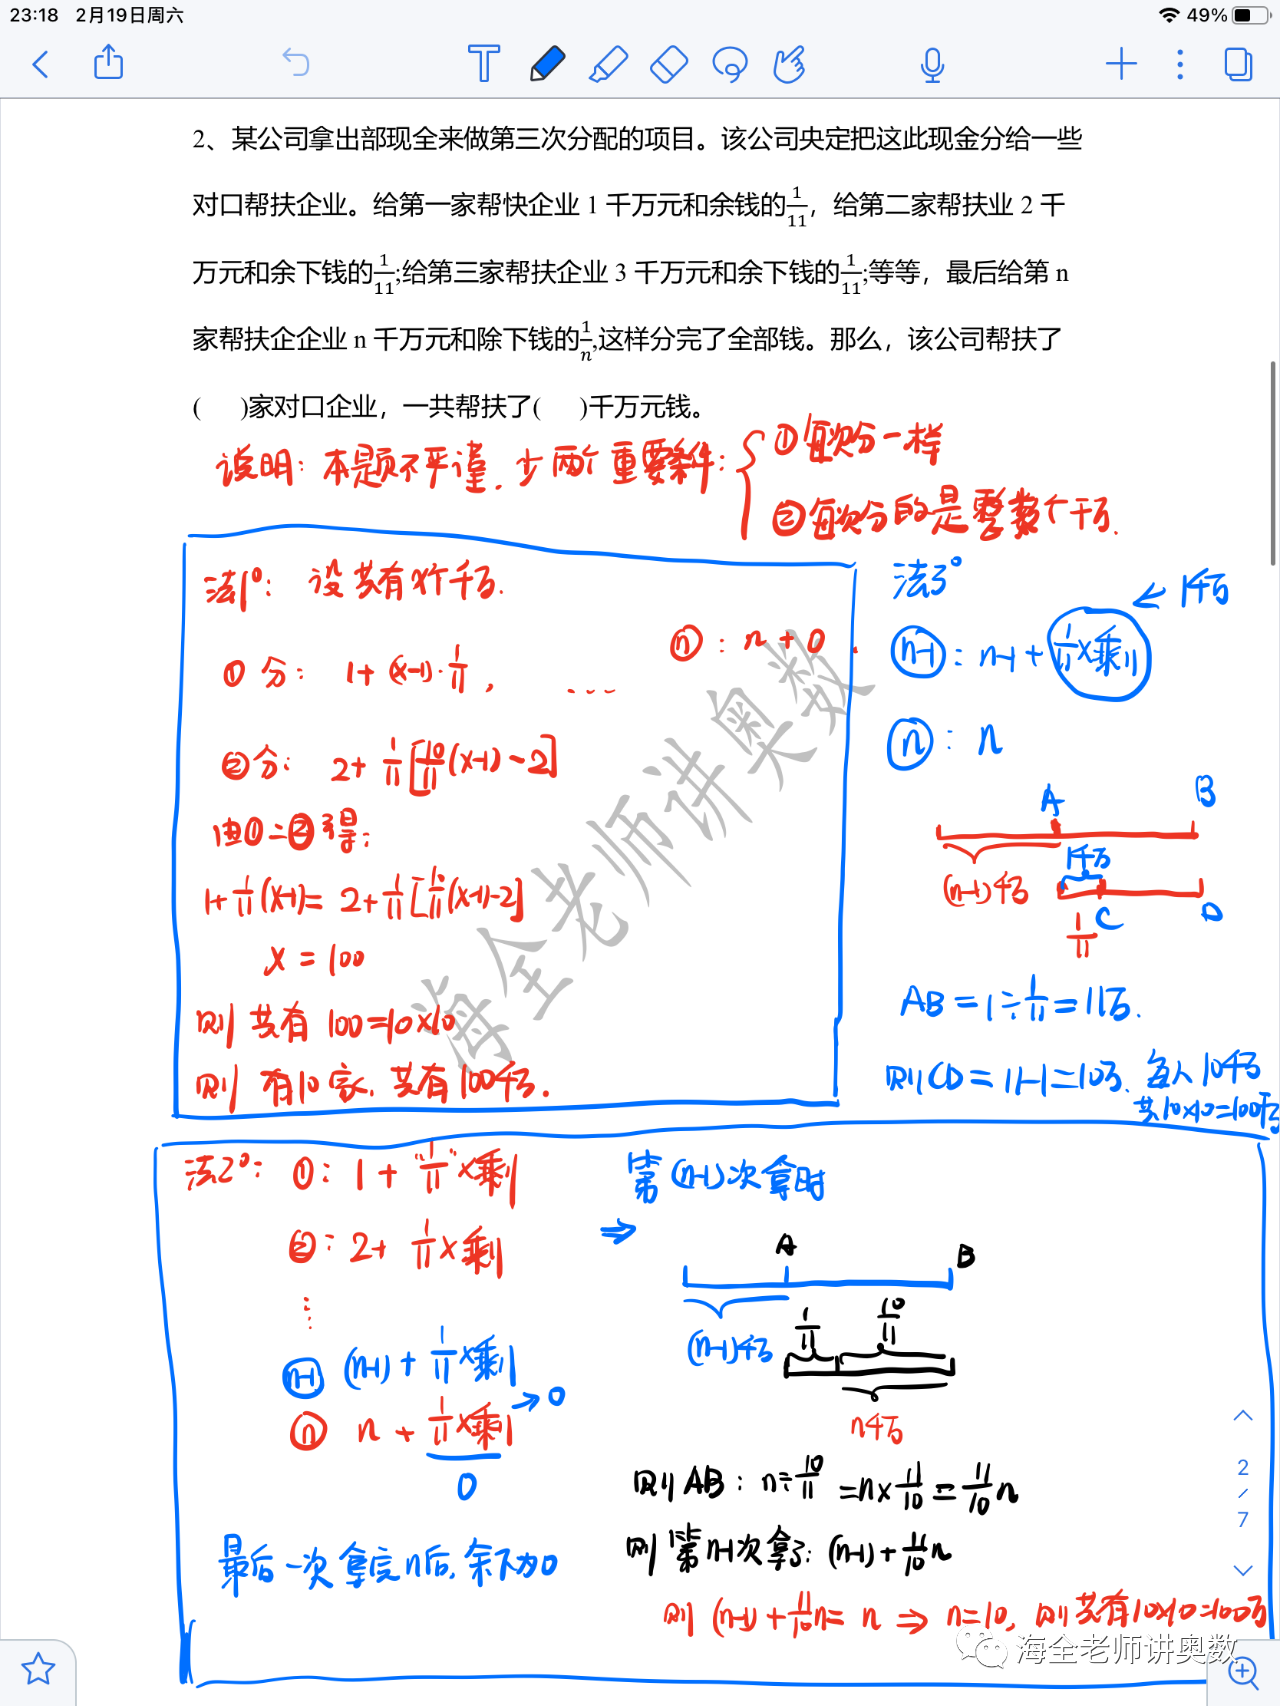 23:18 2月19日周六 49%
2、某公司拿出部现全来做第三次分配的项目。该公司央定把这此现金分给一些
对口帮扶企业。给第一家帮快企业 1 千万元和余钱的1/11，给第二家帮扶业 2 千
万元和余下钱的1/11;给第三家帮扶企业 3 千万元和余下钱的1/11;等等，最后给第 n
家帮扶企企业 n 千万元和除下钱的1/n,这样分完了全部钱。那么，该公司帮扶了
( )家对口企业，一共帮扶了( )千万元钱。
说明: 本题不严谨, 少两个重要条件:
①每次分一样
②每次分的是整数个千万.
法1°: 设共有x个千万.
①分: 1+(x-1)·1/11,
ⓝ: n+0.
②分: 2+1/11[10/11(x-1)-2]
由①=②得:
1+1/11(x-1)=2+1/11[10/11(x-1)-2]
x=100
则共有100=10×10
则有10家,共有100千万.
法3°
1千万
(n-1): n-1+1/11×剩
ⓝ: n
A B
1千万
(n-1)千万
C D
1/11
AB=1÷1/11=11万.
则CD=11-1=10万. 每人10千万
共10×10=100千万
法2°: ①: 1+1/11×剩
②: 2+1/11×剩
⋮
(n-1) (n-1)+1/11×剩
ⓝ n+1/11×剩→0
0
最后一次拿完n后,余下为0
第(n-1)次拿时
⇒
A B
(n-1)千万
1/11 10/11
n千万
则AB: n÷10/11=n×11/10=11/10n
则第n-1次拿了: (n-1)+11/10n
则(n-1)+1/10n=n⇒n=10, 则共有10×10=100万
2/7
海全老师讲奥数
海全老师讲奥数